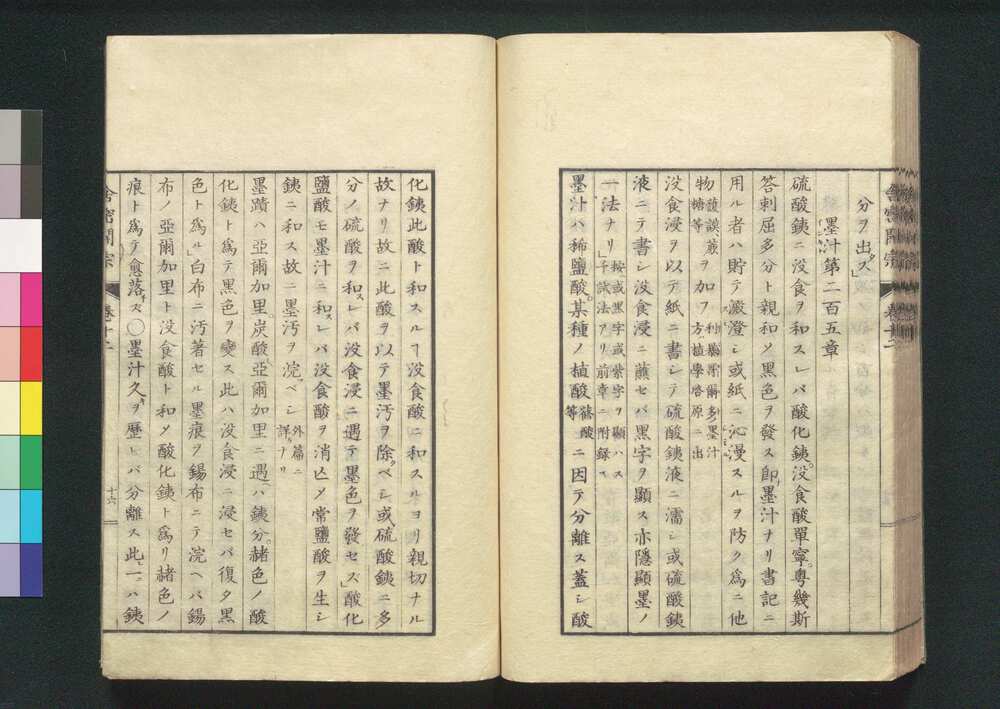 分ヲ出ス」
墨汁第二百五章
硫酸銕ニ没食ヲ和スレバ酸化銕。没食酸單寧。粤幾斯
答剌屈多分ト親和メ黑色ヲ發ス卽墨汁ナリ書記ニ
用ル者ハ貯テ澱澄シ或紙ニ沁漫スルヲ防ク爲ニ他
物護謨葛糖等ヲ加フ
方植學啓原ニ出
没食浸ヲ以テ紙ニ書シテ硫酸銕液ニ濡シ或硫酸銕
液ニテ書シ没食浸ニ蘸セバ黑字ヲ顯ス亦隱顯墨ノ
一法ナリ」按或黑字或紫字ヲ顯ハス
試法アリ前章ニ附録ス
墨汁ハ稀鹽酸。某種ノ植酸醋酸等ニ因テ分離ス蓋シ酸
化銕此酸ト和スルヿ没食酸ニ和スルヨリ親切ナル
故ナリ故ニ此酸ヲ以テ墨汚ヲ除ベシ或硫酸銕ニ多
分ノ硫酸ヲ和スレバ没食浸ニ遇テ墨色ヲ發セズ」酸化
鹽酸モ墨汁ニ和スレバ没食酸ヲ消亾メ常鹽酸ヲ生シ
銕ニ和ス故ニ墨汚ヲ浣ベシ外篇ニ詳ナリ
墨蹟ハ亞爾加里。炭酸亞爾加里ニ遇ハ銕分。赭色ノ酸
化銕ト爲テ黑色ヲ變ス此ハ没食浸ニ浸セバ復タ黑
色ト爲ル」白布ニ汚著セル墨痕ヲ錫布ニテ浣ヘバ錫
布ノ亞爾加里ト没食酸ト和メ酸化銕ト爲リ赭色ノ
痕ト爲テ愈落ズ〇墨汁久ヲ歴レバ分離ス此一ハ銕
舍密開宗
卷十二
十六